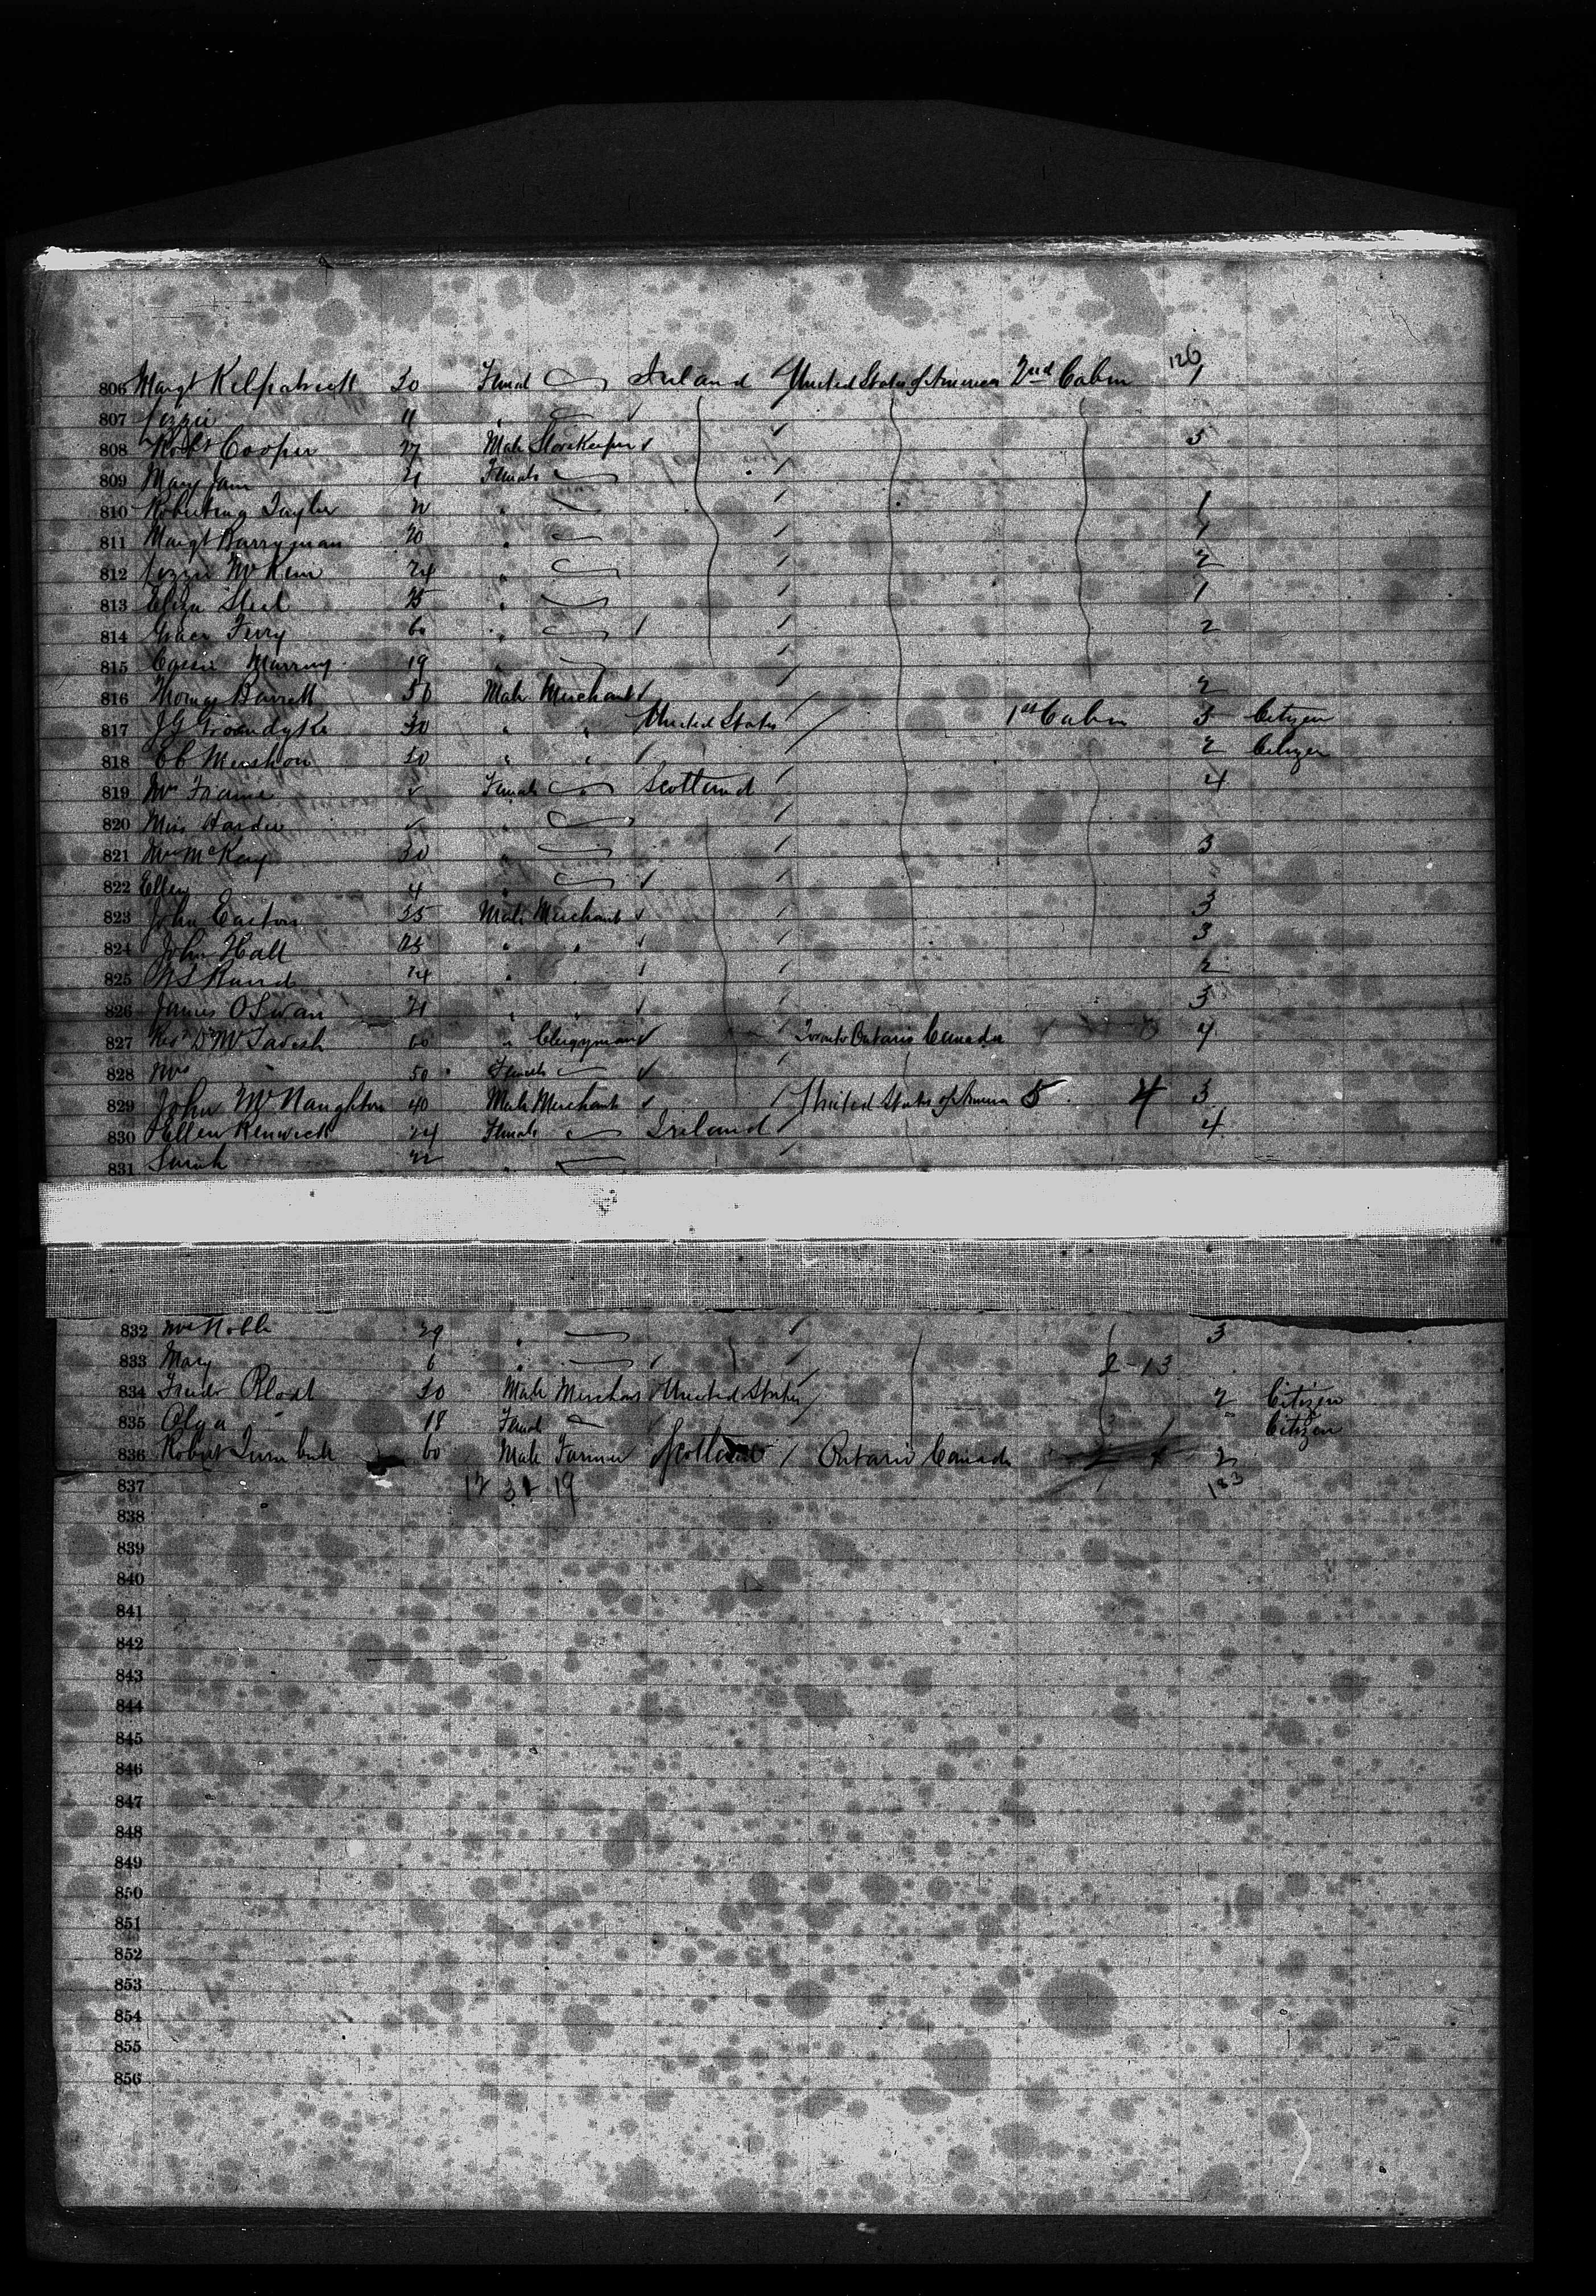 126
806 Margt Kilpatrick 30 Femal Ireland United States of America 2nd Cabin 1
807 Lizzie 11 "
808 Robt Cooper 27 Male Storekeeper 3
809 Mary Jane 21 Female
810 Robertina Taylor 22 " 1
811 Margt Barryman 20 " 1
812 Lizzie McKim 24 " 2
813 Eliza Steel 25 " 1
814 Grace Ferry 60 " 2
815 Cassie Murray 19 "
816 Thomas Barrett 50 Male Merchant 2
817 J G 30 " " United States 1st Cabin 3 Citizen
818 C C Mershon 30 " " 2 Citizen
819 Mrs Frame Female Scotland 4
820 Miss Hardie "
821 Mrs McKay 30 " 3
822 Ellen 4 "
823 John Easton 35 Male Merchant 3
824 John Hall " " 3
825 24 " " 2
826 James O Swan 21 " " 3
827 Revd D McTavish 60 " Clergyman Toronto Ontario Canada 4
828 Mrs 50 Female
829 John McNaughton 40 Male Merchant United States of America 5 4 3
830 Ellen Renwick 24 Female Ireland 4
831 Sarah 22 "
832 Mrs Noble 29 " 3
833 Mary 6 " 2-13
834 30 Male Merchant United States 2 Citizen
835 Olga 18 Femal Citizen
836 Robert Turnbull 60 Male Farmer Scotland Ontario Canada 2
837 19 133
838
839
840
841
842
843
844
845
846
847
848
849
850
851
852
853
854
855
856